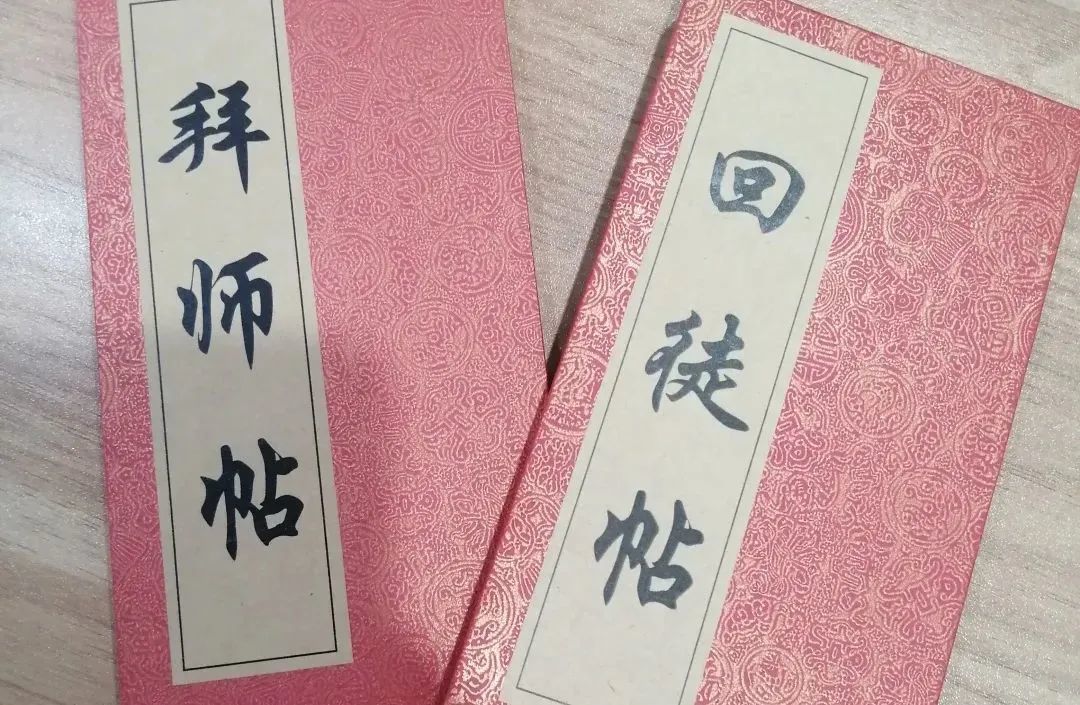 拜师帖
回徒帖